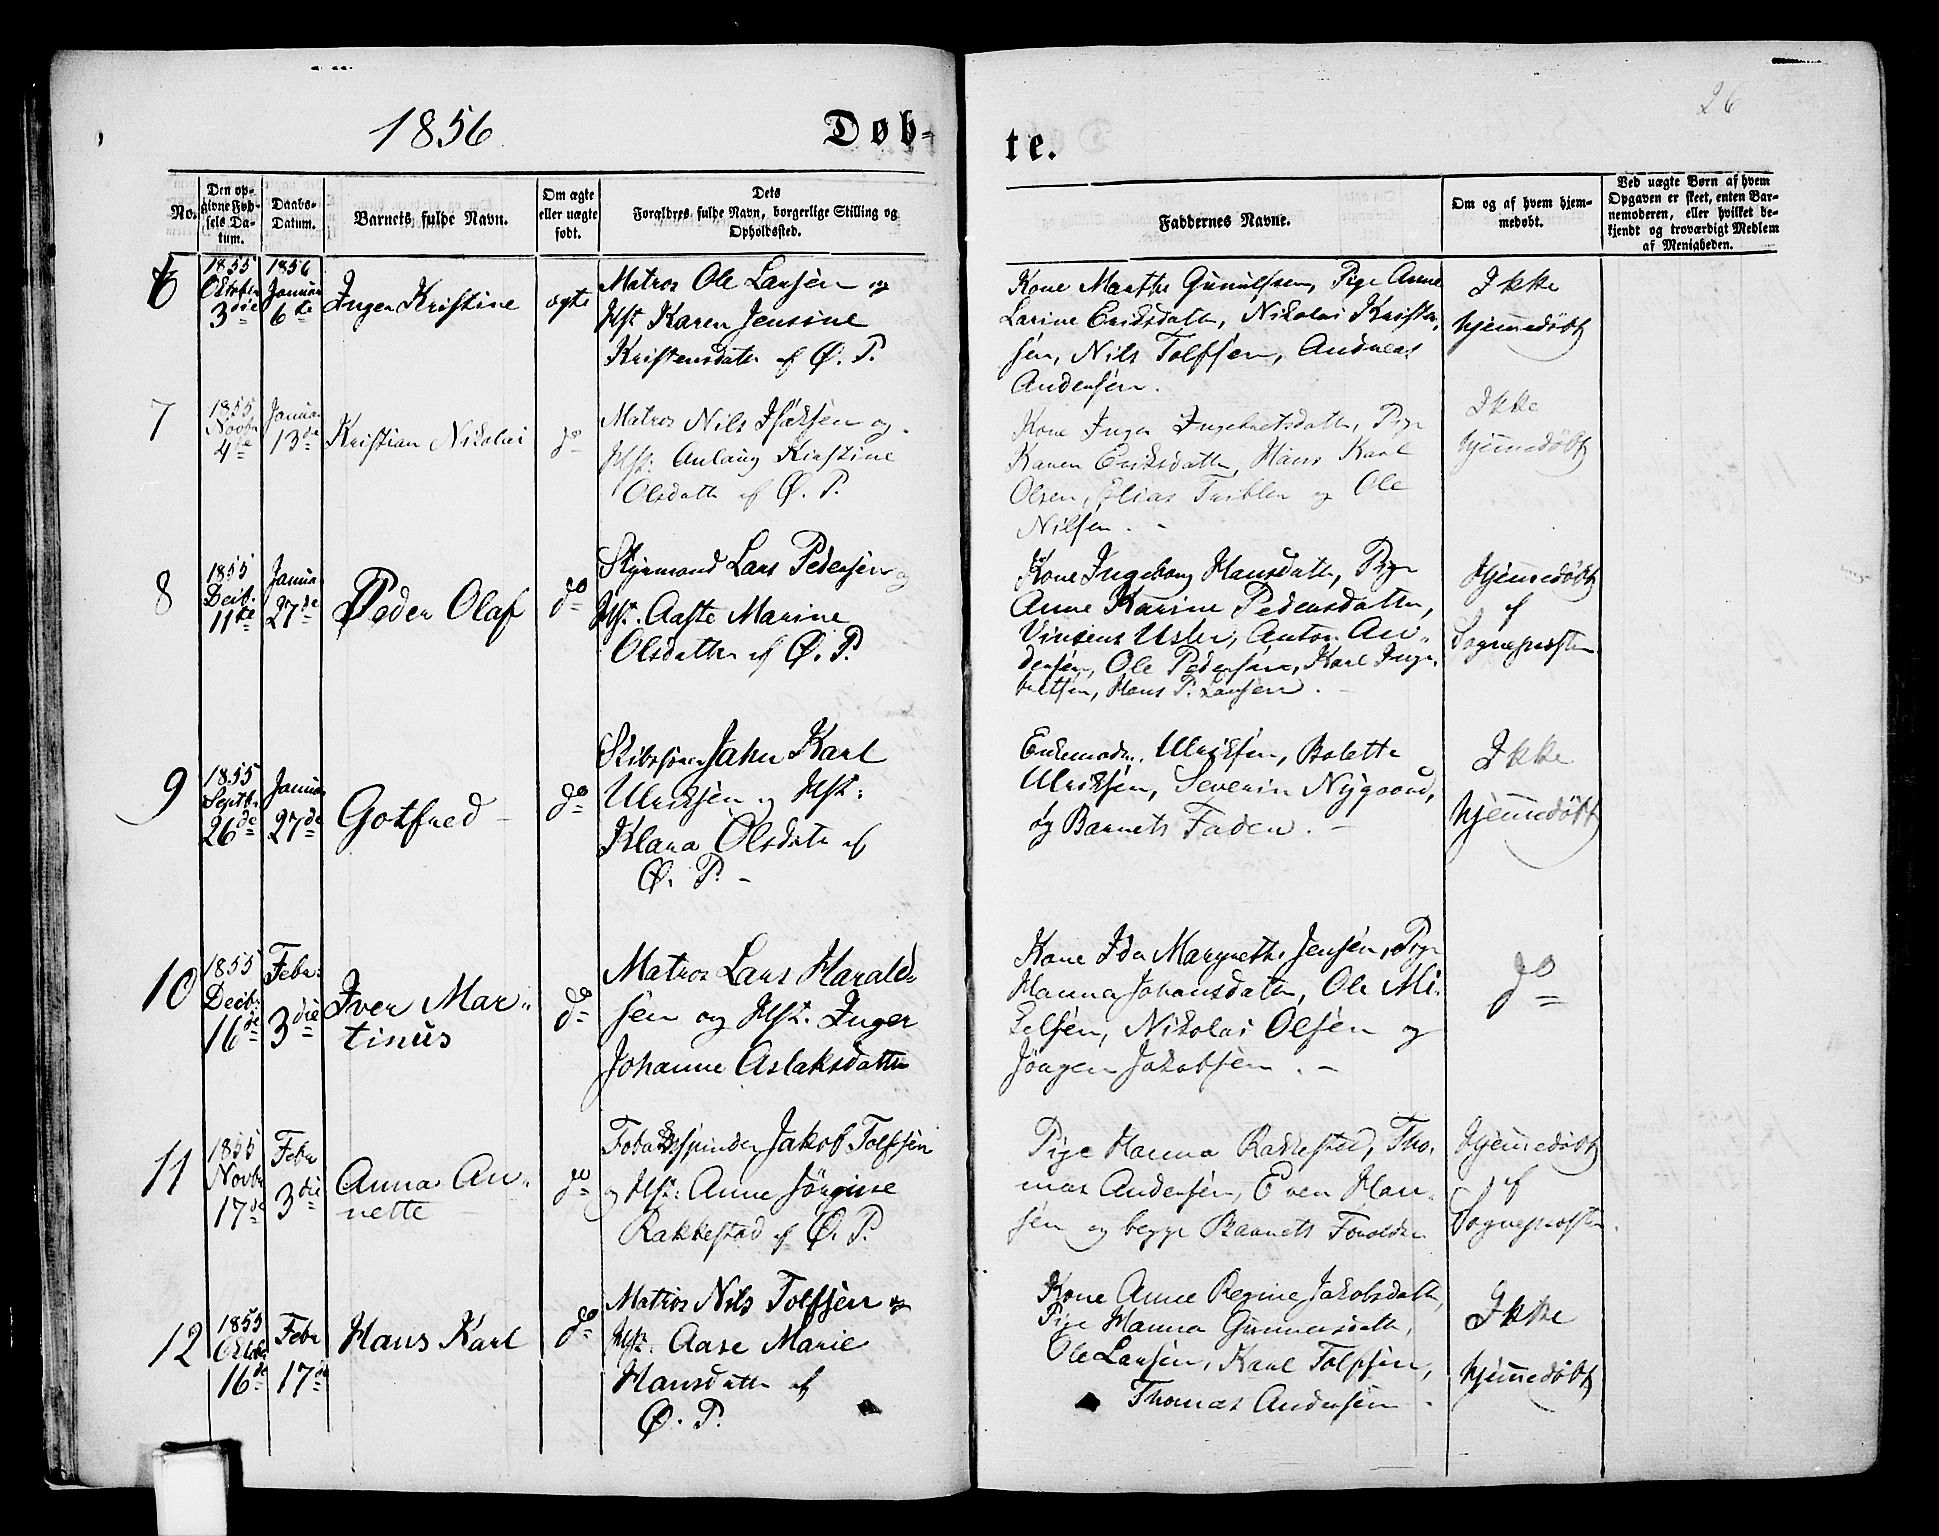 1856
Døb-
te.
26
No.
Den op-
givne Fød-
sels Da-
tum.
Daabs-
Datum.
Barnets fulde Navn.
Om ægte
eller uægte
født.
Dets
Forældres fulde Navn, borgerlige Stilling og
Opholdssted.
Faddernes Navne.
Om og af hvem hjem-
medøbt.
Ved uægte Børn af hvem
Opgaven er skeet, enten Bar-
nemoderen, eller hvilket be-
kjendt og troværdigt Medlem
af Menigheden.
6
1855
Oktober
3die
1856
Januar
6te
Inger Kristine
ægte
Matros Ole Larsen og
Hst Karen Jensine
Kristensdatter af Ø. P.
Kone Marthe Gunulfsen, Pige Anne
Larine Eriksdatter, Nikolai Kristen-
sen, Nils Tolfsen, Andreas
Andersen.
Ikke
hjemmedøbt
7
1855
Novbr
4de
Januar
13de
Kristian Nikolai
do
Matros Nils Isaksen og
Hst: Anlaug Kirstine
Olsdatter af Ø. P.
Kone Inger Ingebretsdatter, Pige
Karen Eriksdatter, Hans Karl
Olsen, Elias og Ole
Nilsen.
Ikke
hjemmedøbt
8
1855
Decb.
11te
Januar
27de
Peder Olaf
do
Styrmand Lars Pedersen og
Hst. Aaste Marine
Olsdatter af Ø. P.
Kone Ingeborg Hansdatter, Pige
Anne Karine Pedersdatter,
Vinsens Usler, Anton An-
dersen, Ole Pedersen, Karl Inge-
bretsen, Hans P. Larsen.
Hjemmedøbt
af
Sogneprosten
9
1855
Septb.
26de
Januar
27de
Gotfred
do
Skibsfører Jahn Karl
Ulriksen og Hst:
Klara Olsdatter af
Ø. P.
Enkemadm. Ulriksen, Bolette
Ulriksen, Severin Nygaard,
og Barnets Fader.
Ikke
hjemmedøbt
10
1855
Decb.
16de
Febr:
3die
Iver Mar-
tinus
do
Matros Lars Harald-
sen og Hst. Inger
Johanne Aslaksdatter
Kone Ida Margrethe Jensen, Pige
Hanna Johansdatter, Ole Mi-
kelsen, Nikolai Olsen og
Jörgen Jakobsen.
do
11
1855
Novbr
17de
Febr
3die
Anna An-
nette
do
Tobaksspinder Jakob Tolfsen
og Hst: Anne Jörgine
Rakkestad af Ø. P.
Pige Hanna Rakkestad, Tho-
mas Andersen, Even Han-
sen og begge Barnets Forældre
Hjemmedøbt
af
Sogneprosten.
12
1855
Oktbr
16de
Febr
17de
Hans Karl
do
Matros Nils Tolfsen og
Hst. Aase Marie
Hansdatter af
Ø. P.
Kone Anne Regine Jakobsdatter,
Pige Hanna Gunnersdatter,
Ole Larsen, Karl Tolfsen,
Thomas Andersen.
Ikke
hjemmedøbt